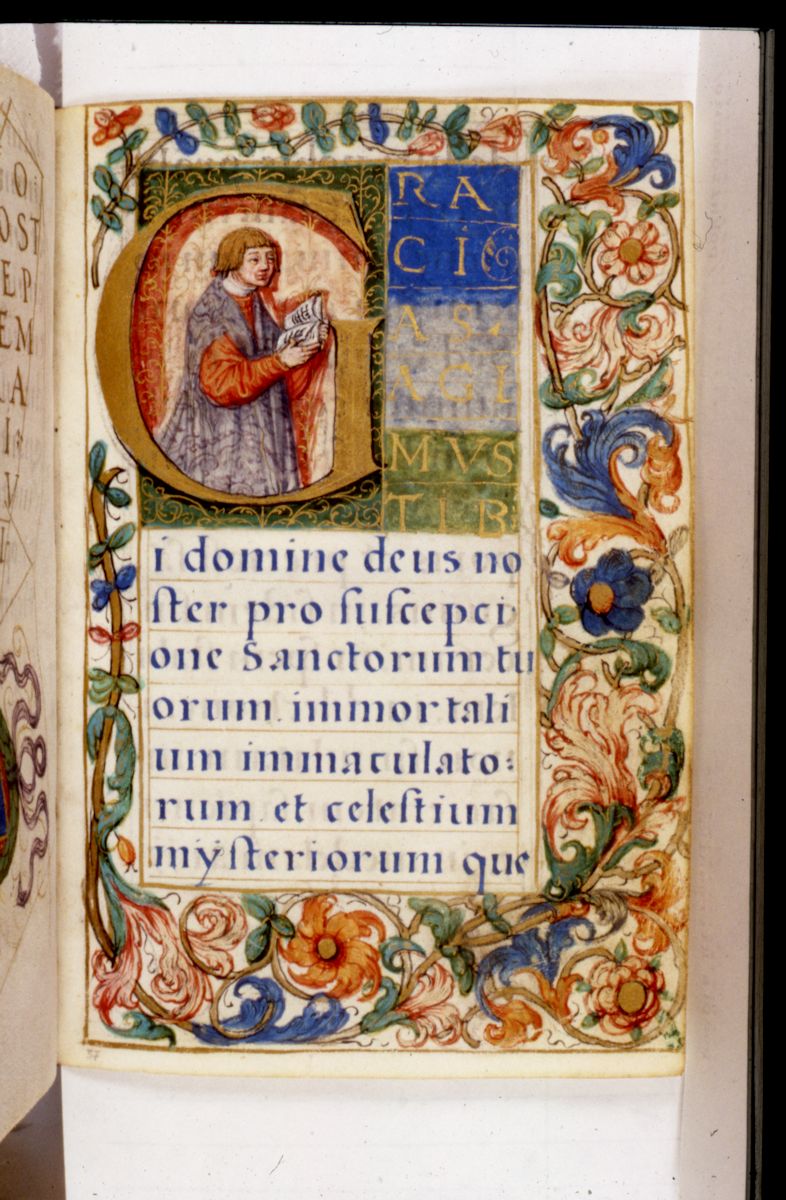 O
OST
EP
EM
A
I
V
GRA
CI
AS
AGI
MVS
TIB
i domine deus no
ſter pro ſuſcepci
one Sanctorum tu
orum immortali
um immaculato:
rum et celeſtium
mÿſteriorum que
37